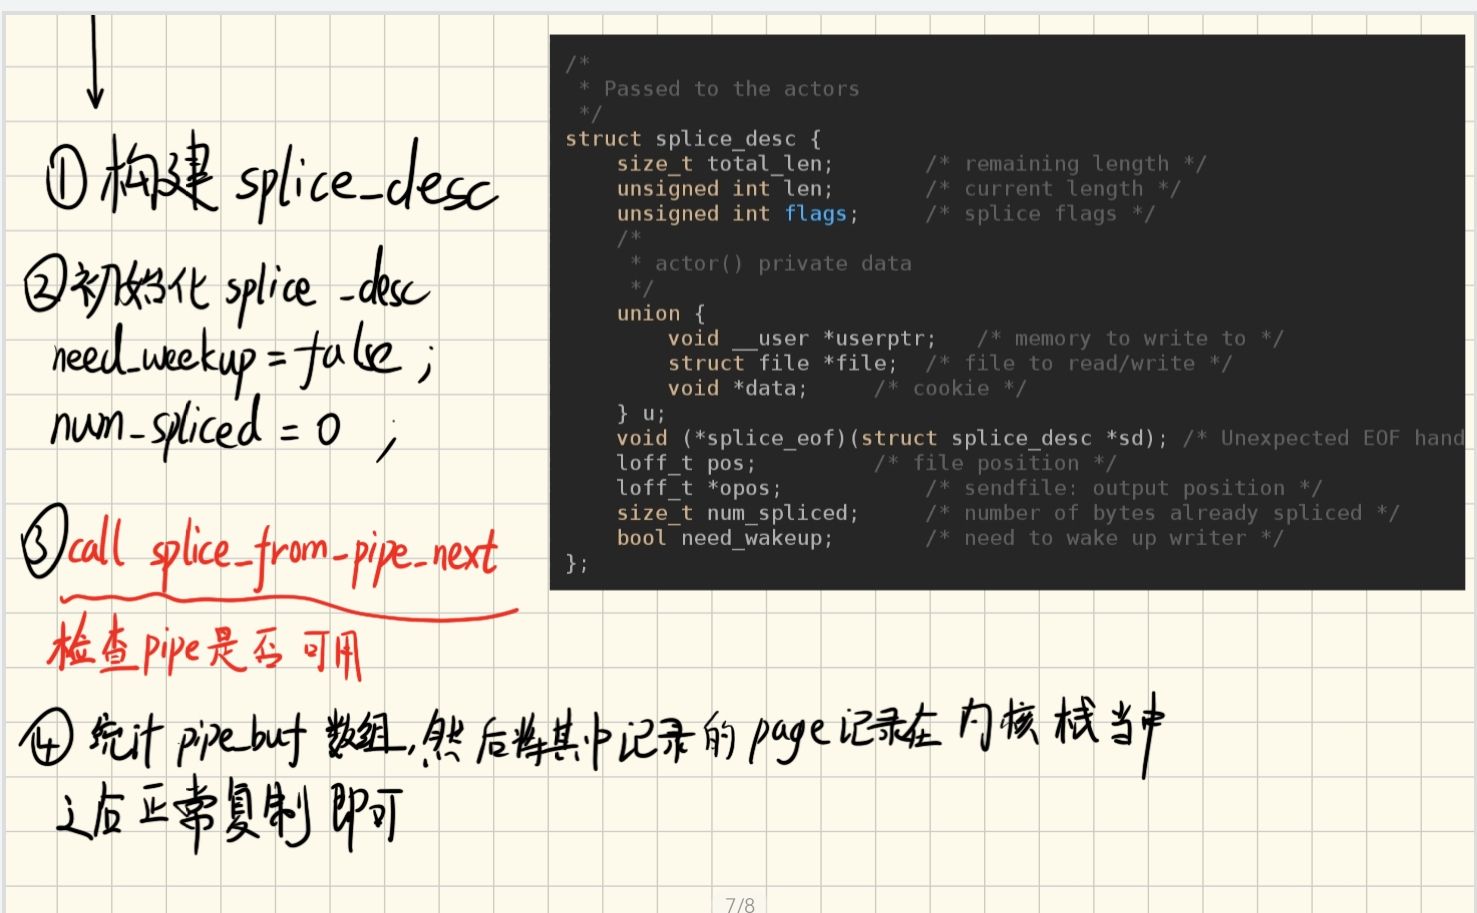 ①构建 splice_desc
②初始化 splice_desc
need_weekup = false ;
num_spliced = 0 ;
③call splice_from_pipe_next
检查pipe是否可用
④ 统计 pipe_buf 数组,然后将其中记录的page记录在内核栈当中
之后正常复制即可
/*
 * Passed to the actors
 */
struct splice_desc {
    size_t total_len;       /* remaining length */
    unsigned int len;       /* current length */
    unsigned int flags;     /* splice flags */
    /*
     * actor() private data
     */
    union {
        void __user *userptr;   /* memory to write to */
        struct file *file;  /* file to read/write */
        void *data;     /* cookie */
    } u;
    void (*splice_eof)(struct splice_desc *sd); /* Unexpected EOF hand
    loff_t pos;         /* file position */
    loff_t *opos;           /* sendfile: output position */
    size_t num_spliced;     /* number of bytes already spliced */
    bool need_wakeup;       /* need to wake up writer */
};
7/8